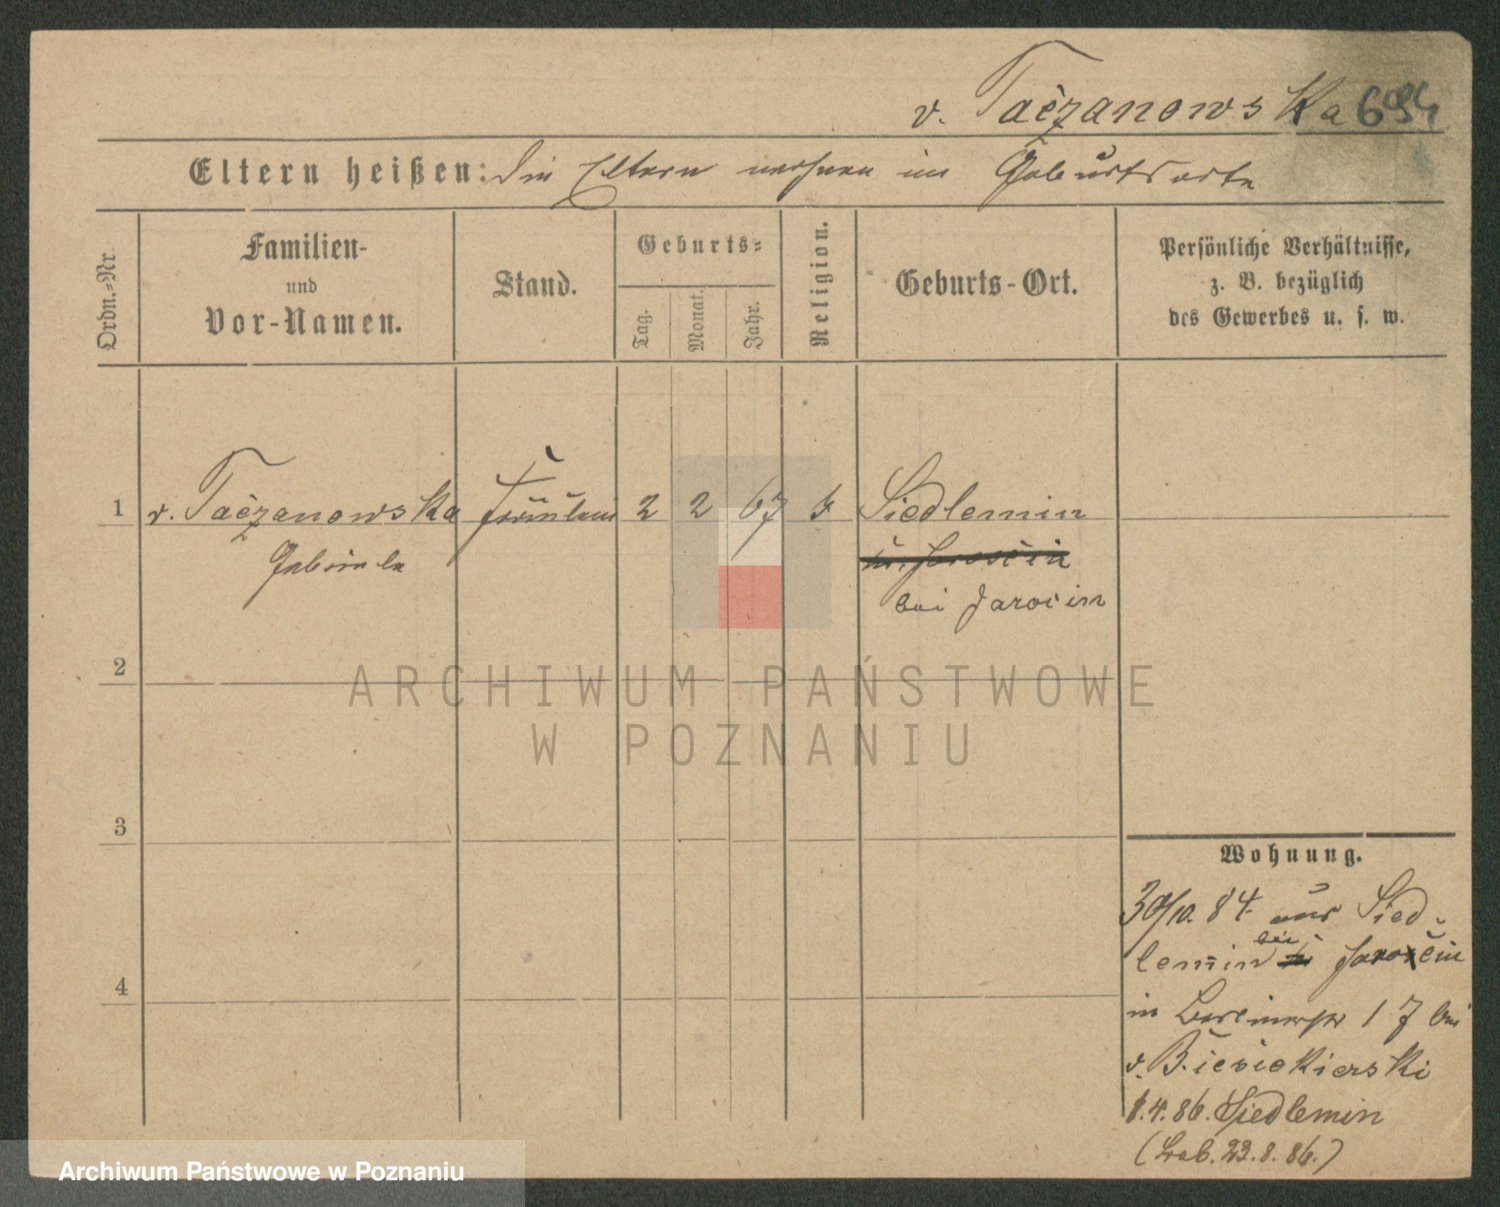 v. Taczanowska 694
Eltern heißen: Die Eltern wohnen im Geburtsorte
Ordn.=Nr.
Familien-
und
Vor-Namen.
Stand.
Geburts=
Tag.
Monat.
Jahr.
Religion.
Geburts-Ort.
Persönliche Verhältnisse,
z. B. bezüglich
des Gewerbes u. s. w.
1 v. Taczanowska Fräulein 2 2 67 Siedlemin
Gabriela
Jarocin
bei Jarocin
2
3
4
Wohnung.
30/10. 84. aus Sied-
lemin bei Jarocin
in Berlinerstr 17 bei
v. Biesiekierski
1.4.86. Siedlemin
22.8.86.)
ARCHIWUM PAŃSTWOWE
W POZNANIU
Archiwum Państwowe w Poznaniu